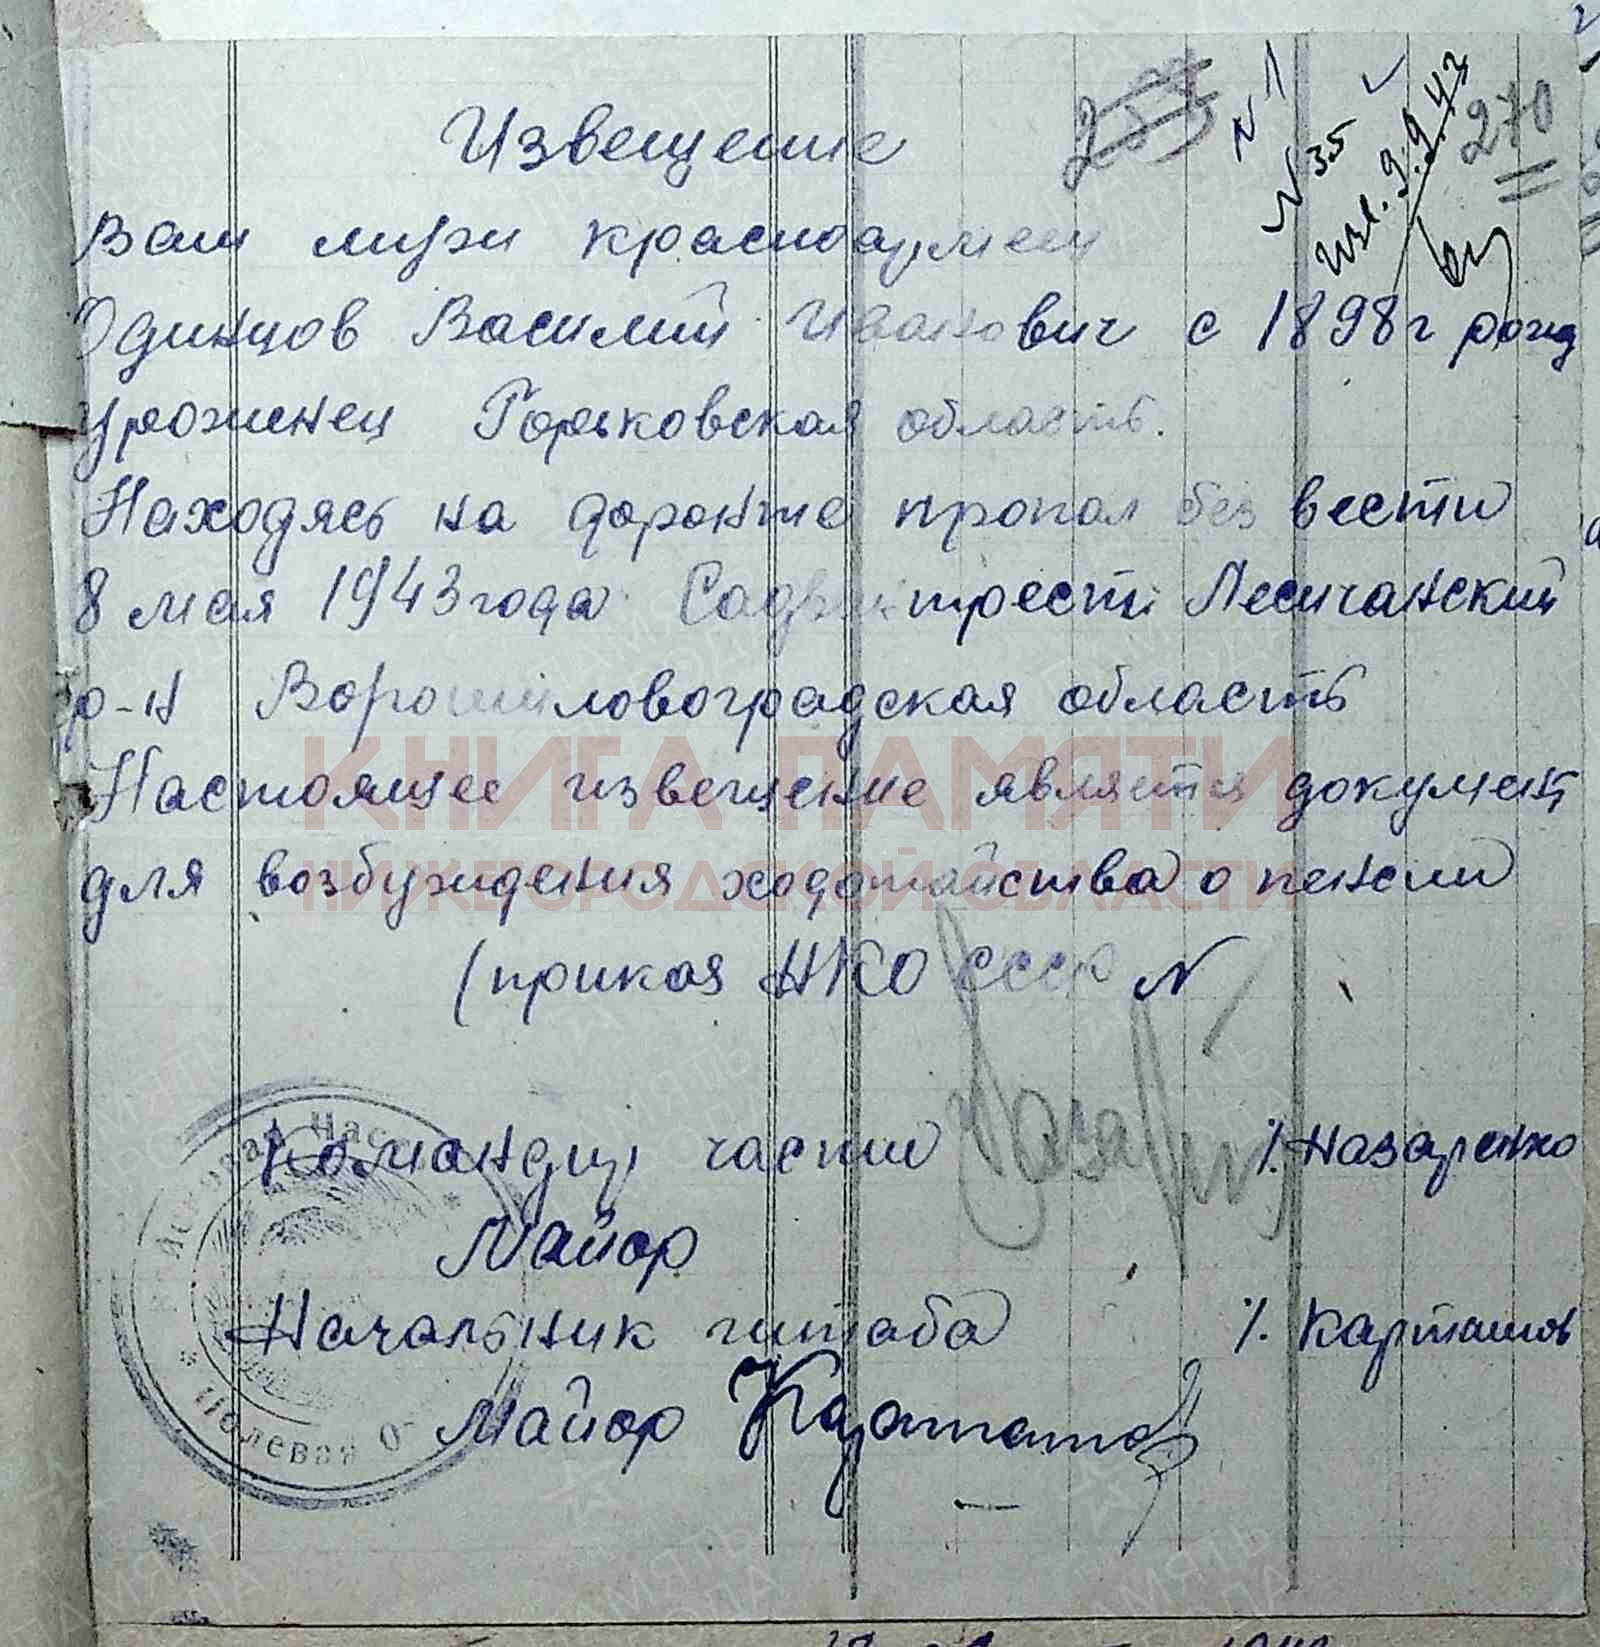 257
N 1
N 35
изв. 9.9.43
270
Извещение
Ваш муж красноармеец
Одинцов Василий Иванович с 1898 г рожд
уроженец Горьковская область.
Находясь на фронте пропал без вести
8 мая 1943 года трест Лесичанский
р-н Ворошиловоградская область
КНИГА ПАМЯТИ
Настоящее извещение является докумен
НИЖЕГОРОДСКОЙ ОБЛАСТИ
для возбуждения ходотайства о пенсии
(приказ НКО СССР N
Командир части /. Назаренко
Майор
Начальник штаба /. Карташов
Майор Карташов
Полевая